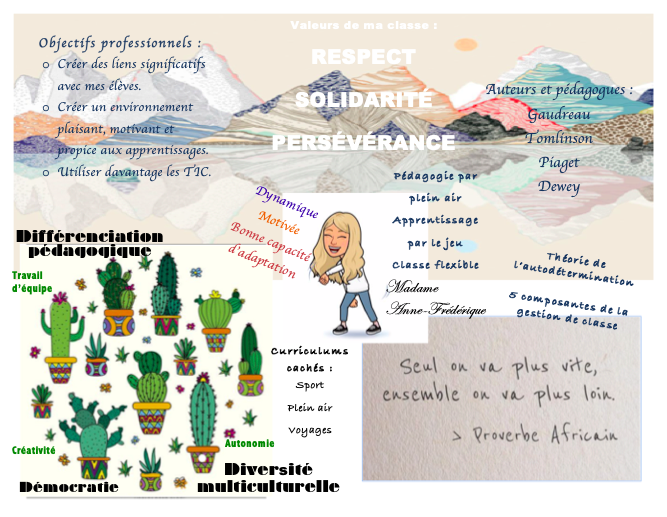 Valeurs de ma classe :
RESPECT
SOLIDARITÉ
PERSÉVÉRANCE
Objectifs professionnels :
o Créer des liens significatifs
avec mes élèves.
o Créer un environnement
plaisant, motivant et
propice aux apprentissages.
o Utiliser davantage les TIC.
Auteurs et pédagogues :
Gaudreau
Tomlinson
Piaget
Dewey
Pédagogie par
plein air
Apprentissage
par le jeu
Classe flexible
Dynamique
Motivée
Bonne capacité
d'adaptation
Madame
Anne-Frédérique
Théorie de
l'autodétermination
5 composantes de la
gestion de classe
Différenciation
pédagogique
Travail
d'équipe
Créativité
Autonomie
Démocratie
Diversité
multiculturelle
Curriculums
cachés :
Sport
Plein air
Voyages
Seul on va plus vite,
ensemble on va plus loin.
> Proverbe Africain